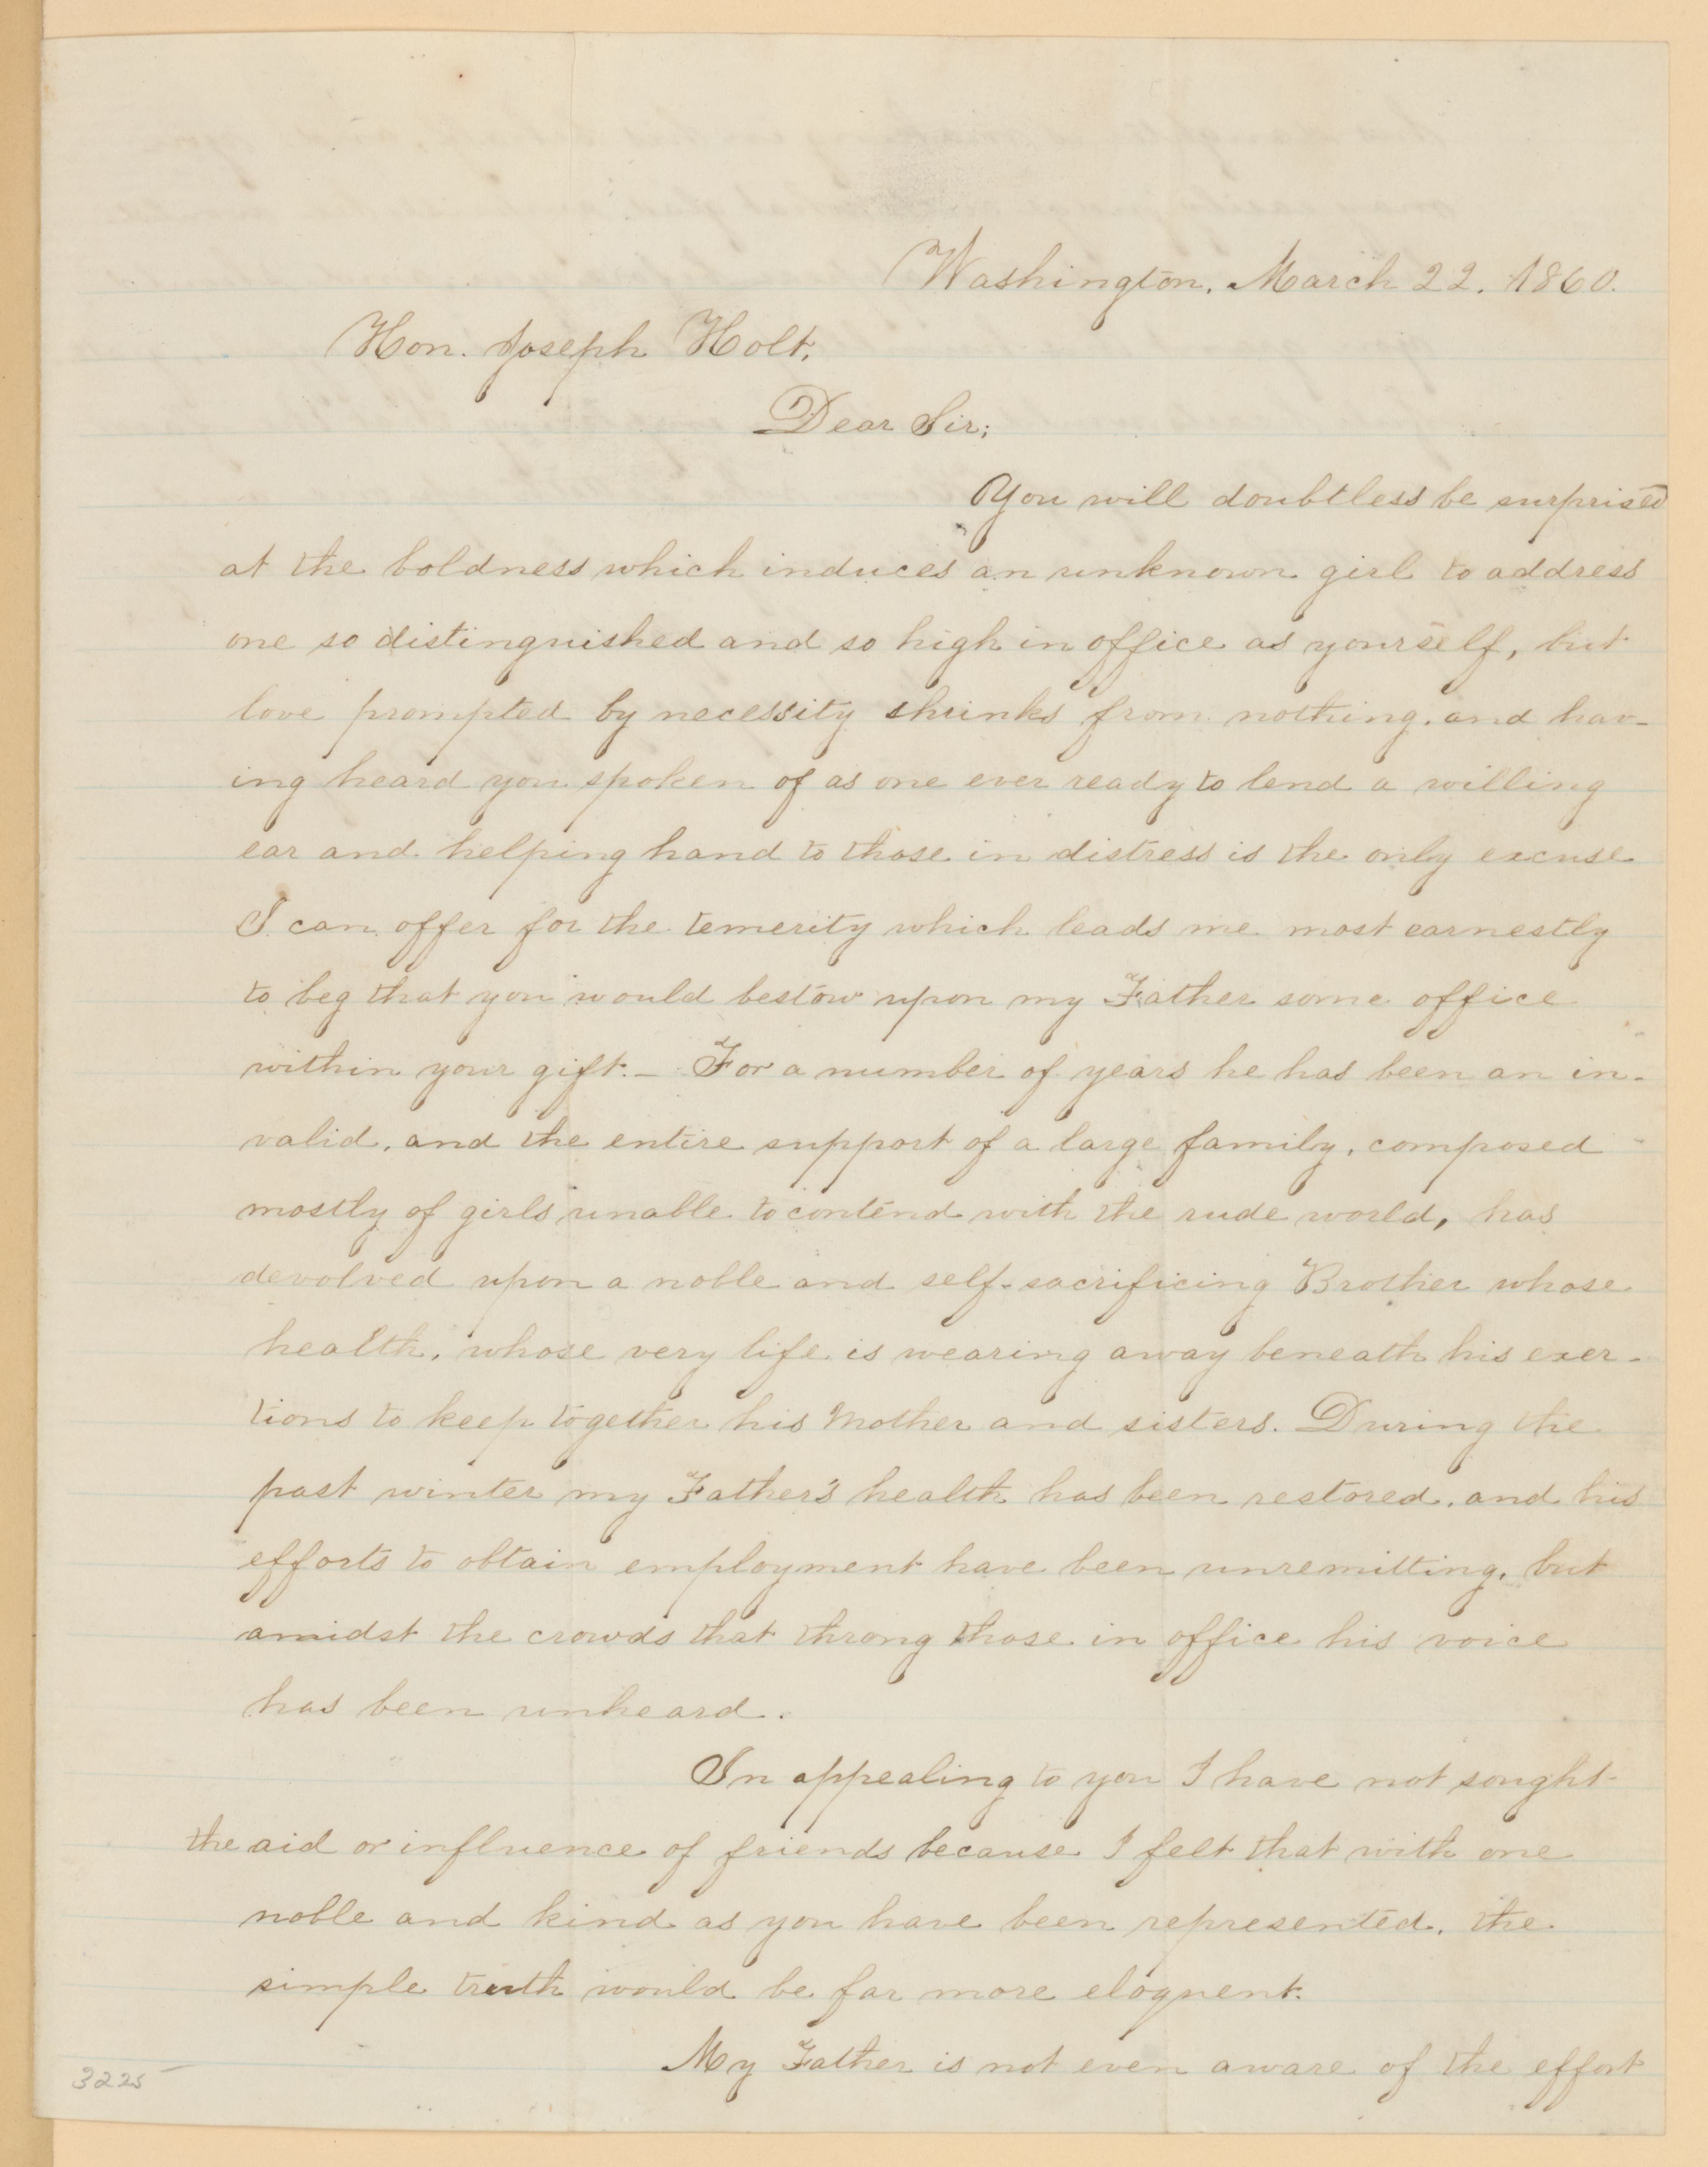 Washington, March 22. 1860.
Hon. Joseph Holt,
Dear Sir;
You will doubtless be surprised
at the boldness which induces an unknown girl to address
one so distinguished and so high in office as yourself, but
love prompted by necessity shrinks from nothing, and hav-
ing heard you spoken of as one ever ready to lend a willing
ear and helping hand to those in distress is the only excuse
I can offer for the temerity which leads me most earnestly
to beg that you would bestow upon my Father some office
within your gift. - For a number of years he has been an in-
valid, and the entire support of a large family, composed
mostly of girls unable to contend with the rude world, has
devolved upon a noble and self-sacrificing Brother whose
health, whose very life is wearing away beneath his exer-
tions to keep together his Mother and sisters. During the
past winter my Father's health has been restored, and his
efforts to obtain employment have been unremitting, but
amidst the crowds that throng those in office his voice
has been unheard.
In appealing to you I have not sought
the aid or influence of friends because I felt that with one
noble and kind as you have been represented, the
simple truth would be far more eloquent.
My Father is not even aware of the effort
3225